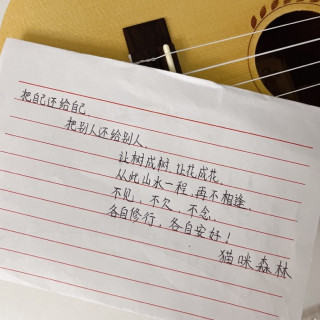 把自己还给自己,
把别人还给别人,
让树成树,让花成花,
从此山水一程,再不相逢,
不见、不欠、不念,
各自修行,各自安好!
猫咪森林